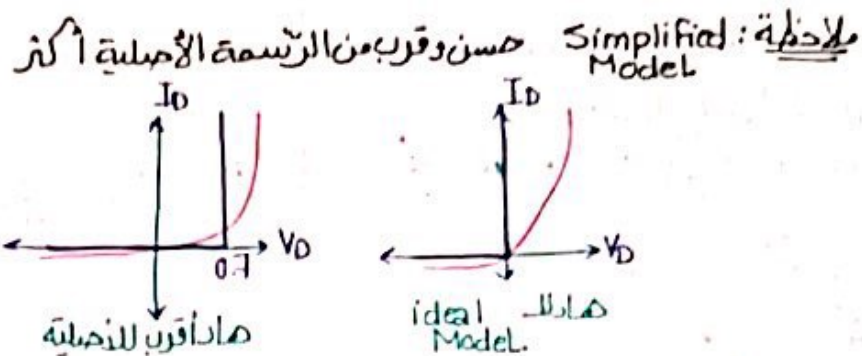 ملاحظة : Simplified Model حسن وقرب من الرّسمة الأصلية أكثر
I_D
V_D
0.7
هاد أقرب للأصلية
I_D
V_D
هاد للـ ideal Model.